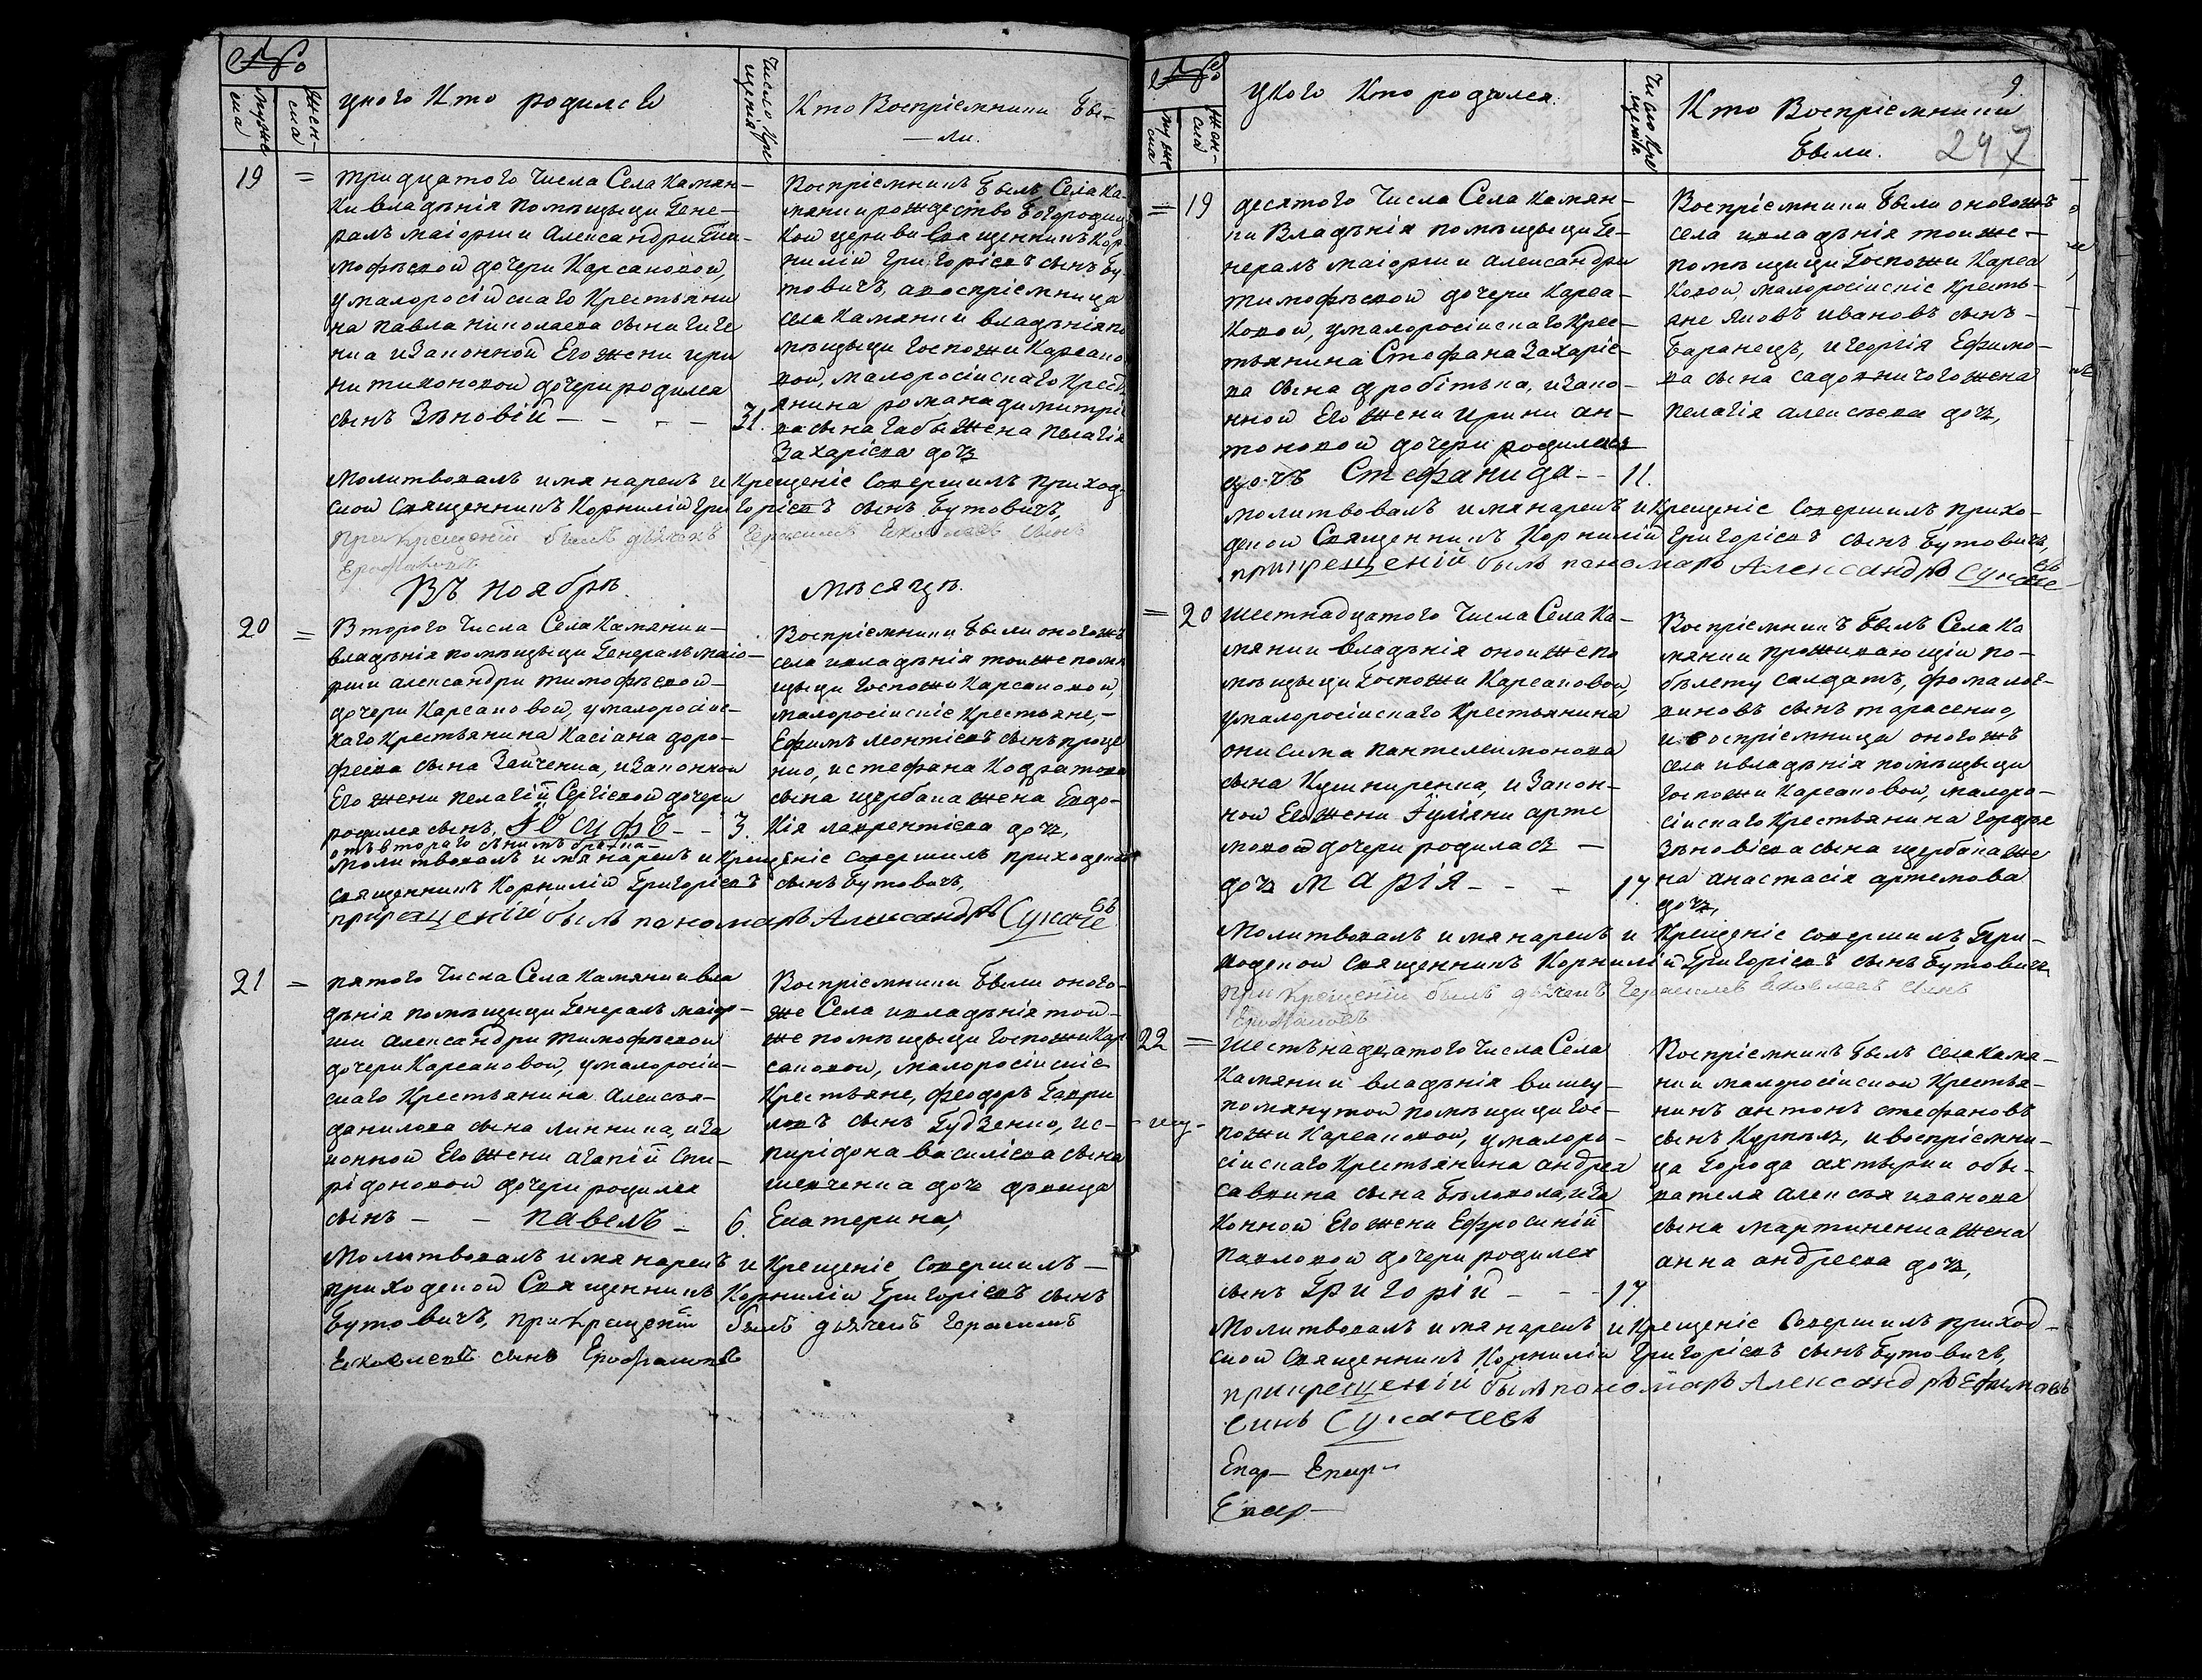 №
мужеска
женска
у кого Кто родился
Число Крещенія
Кто Воспріємники Бы-
ли.
19 =
тридцатого Числа Села Камян-
ки владѣнія помѣщицы Гене-
ралъ маіорши Александри Тим-
мофѣевой дочери Карсаковой,
у малоросійскаго Крестьяни
на Павла Николаева сына
и Законной Его жени Ири
ни тихоновой дочери родился
сынъ Зѣновій - - - - 31.
Воспріємникъ Былъ Села Ка-
мянки рождество Богородиц
кой церкви Священникъ Кор
нилій Григоріевъ сынъ Бу
товичъ, а воспріємница
села Камянки владѣнія по
мѣщицы Госпожи Карсако
вой, малоросійскаго Крест
янина романа димитріе
ва сына Габы жена Пелагія
Захаріева дочъ
Молитвовалъ имя нарекъ и Крещеніе Совершилъ приход-
ской Священникъ Корнилій Григоріевъ сынъ Бутовичъ,
при Крещеній былъ дьячекъ Герасимъ Яковлевъ сынъ
Ерофаловъ
Въ ноябрѣ мѣсяцѣ.
20 =
Второго Числа Села Камянки -
владѣнія помѣщицы Генералъ маіо-
рши александри тимофѣевой -
дочери Карсаковой, у малоросійс-
каго Крестьянина Касіана доро-
феева сына Зайченка, и Законной
Его жени Пелагій Сергіевой дочери
родился сынъ, Іосифъ - - 3.
отъ второго сѣимъ брака -
Воспріємники Были оногожъ
села и владѣнія тоиже помѣ
щицы госпожи Карсаковой,
малоросійскіе Крестьяне, -
Ефимъ Леонтіевъ сынъ проце
нко, и стефана Кодратова
сына щербака жена Евдо-
кія лаврентіева дочъ,
Молитвовалъ имя нарекъ и Крещеніе совершилъ приходской
священникъ Корнилій Григоріевъ сынъ Бутовичъ,
при крещеній былъ паномарь Александръ Сукачевъ
21 =
пятого Числа Села Камянки вла
дѣнія помѣщицы Генералъ маіор-
ши Александри тимофѣевой
дочери Карсаковой, у малоросій-
скаго Крестьянина Алексѣя -
данилова сына линника, и За
конной Его жени агапій Спи-
рідоновой дочери родился
сынъ - - Павелъ - 6.
Воспріємники Были оного-
же Села и владѣнія той-
же помѣщицы Госпожи Кар
саковой, малоросійскіе
Крестьяне, Феодоръ Гаври
ловъ сынъ Гудзенко, и с-
пирідона василіева сына
шевченка дочъ дѣвица
Екатерина,
Молитвовалъ имя нарекъ и Крещеніе Совершилъ -
приходской Священникъ Корнилій Григоріевъ сынъ
Бутовичъ, при Крещеній былъ дьячекъ Герасимъ
Яковлевъ сынъ Ерофаловъ
№
мужеска
женска
У Кого Кто родился.
Число Крещенія.
Кто Воспріємники
Были.
9.
247
= 19
десятого Числа Села Камян-
ки Владѣнія помѣщицы Ге-
нералъ маіорши александри
тимофѣевой дочери Карса-
ковой, у малоросійскаго Крес-
тьянина Стефана Захаріе-
ва сына дробітька, и Зако-
нной Его жени Ирини ан-
тоновой дочери родилась
дочъ Стефанида - - 11.
Воспріємники Были оногожъ
села и владѣнія тоиже -
помѣщицы Госпожи Карса
ковой, малоросійскіе Кресть-
яне Яковъ ивановъ сынъ -
Баранецъ, и георгія Ефимо-
ва сына садовничого жена
Пелагія алексѣева дочъ,
молитвовалъ имя нарекъ и Крещеніе Совершилъ прихо-
дской Священникъ Корнилій Григоріевъ сынъ Бутовичъ,
при крещеній былъ паномарь Александръ Сукачевъ
= 20
шестнадцатого Числа Села Ка-
мянки владѣнія оноиже по
мѣщицы Госпожи Карсаковой,
у малоросійскаго Крестьянина
онисима пантелеимонова
сына Кушниренка, и Закон-
ной Его жени Іуліяни арте
мовой дочери родилась -
дочъ Марія - - - 17.
Воспріємникъ Былъ Села Ка
мянки проживающій по-
билету салдатъ, фома
сынъ тарасенко,
и воспріємница оногожъ
села и владѣнія помѣщицы
госпожи Карсаковой, малоро-
сійскаго Крестьянина гордѣя
Зѣновіева сына щербака же
на анастасія артемова
дочъ,
Молитвовалъ имя нарекъ и Крещеніе совершилъ При-
ходской священникъ Корнилій Григоріевъ сынъ Бутовичъ
при Крещеній былъ дьячекъ Герасимъ Яковлевъ сынъ
Ерофаловъ
22 =
шестьнадцатого Числа Села
Камянки владѣнія вишеу-
помянутой помѣщицы Гос-
пожи Карсаковой, у малоро-
сійскаго Крестьянина андрея
савина сына Бѣловола, и За
конной Его жени Ефросиній
Павловой дочери родился
сынъ Григорій - - - 17.
Воспріємникъ Былъ села Камя-
нки малоросійской Крестья-
нинъ антонъ стефановъ
сынъ Курпиль, и воспріємни-
ца Города ахтырки обы-
вателя алексѣя иванова
сына мартиненка жена
анна андреева дочъ,
Молитвовалъ имя нарекъ и Крещеніе Совершилъ приход-
ской священникъ Корнилій Григоріевъ сынъ Бутовичъ,
при крещеній былъ паномарь Александръ Ефимовъ
синъ Сукачевъ